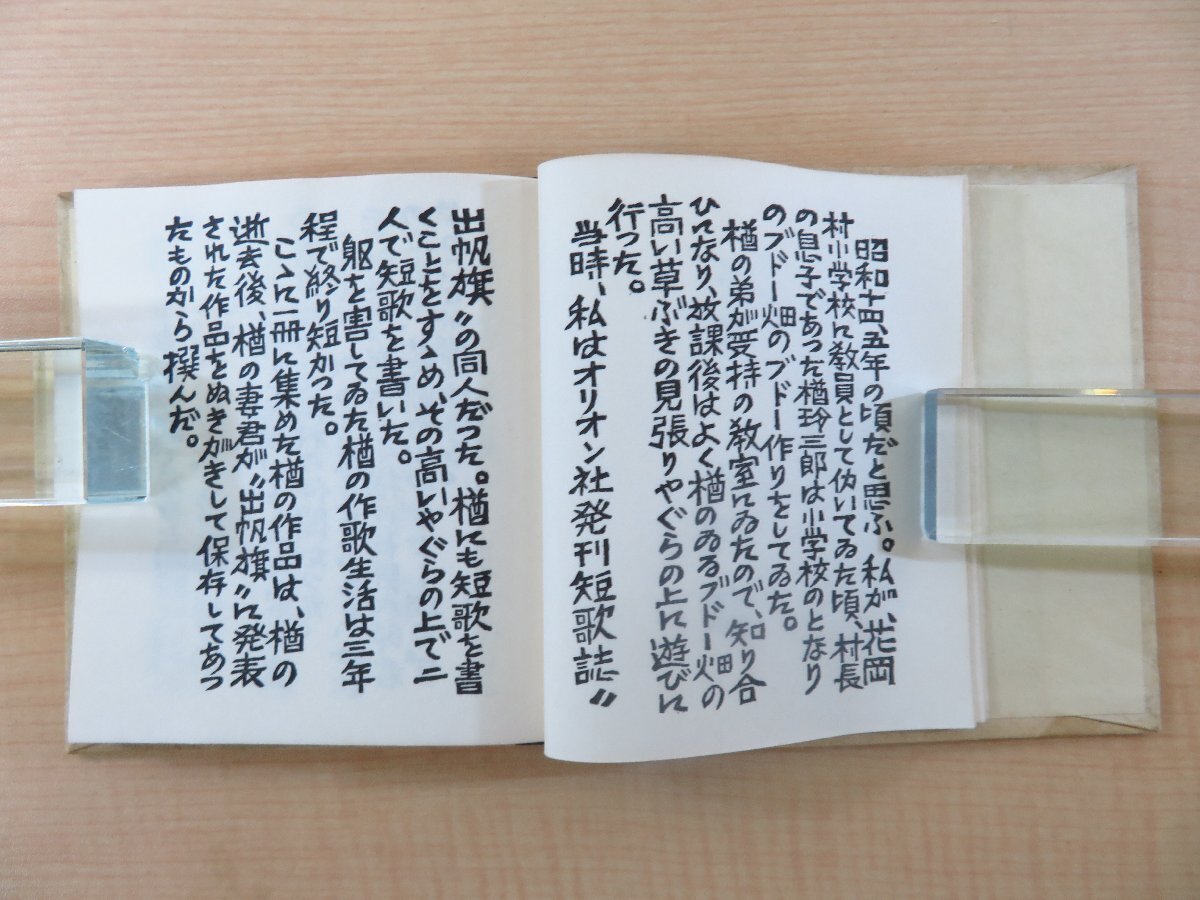 昭和十四、五年の頃だと思ふ。私が、花岡
村小学校に教員として伪いてゐた頃、村長
の息子であった楢玲三郎は小学校のとなり
のブドー畑のブドー作りをしてゐた。
楢の弟が受持の教室にゐたので、知り合
ひになり、放課後はよく楢のゐるブドー畑の
高い草ぶきの見張りやぐらの上に遊びに
行った。
当時、私はオリオン社発刊短歌誌〝
出帆旗〟の同人だった。楢にも短歌を書
くことをすゝめ、その高いやぐらの上で二
人で短歌を書いた。
躯を害してゐた楢の作歌生活は三年
程で終り短かった。
こゝに一冊に集めた楢の作品は、楢の
逝去後、楢の妻君が〝出帆旗〟に発表
された作品をぬきがきして保存してあっ
たものから撰んだ。